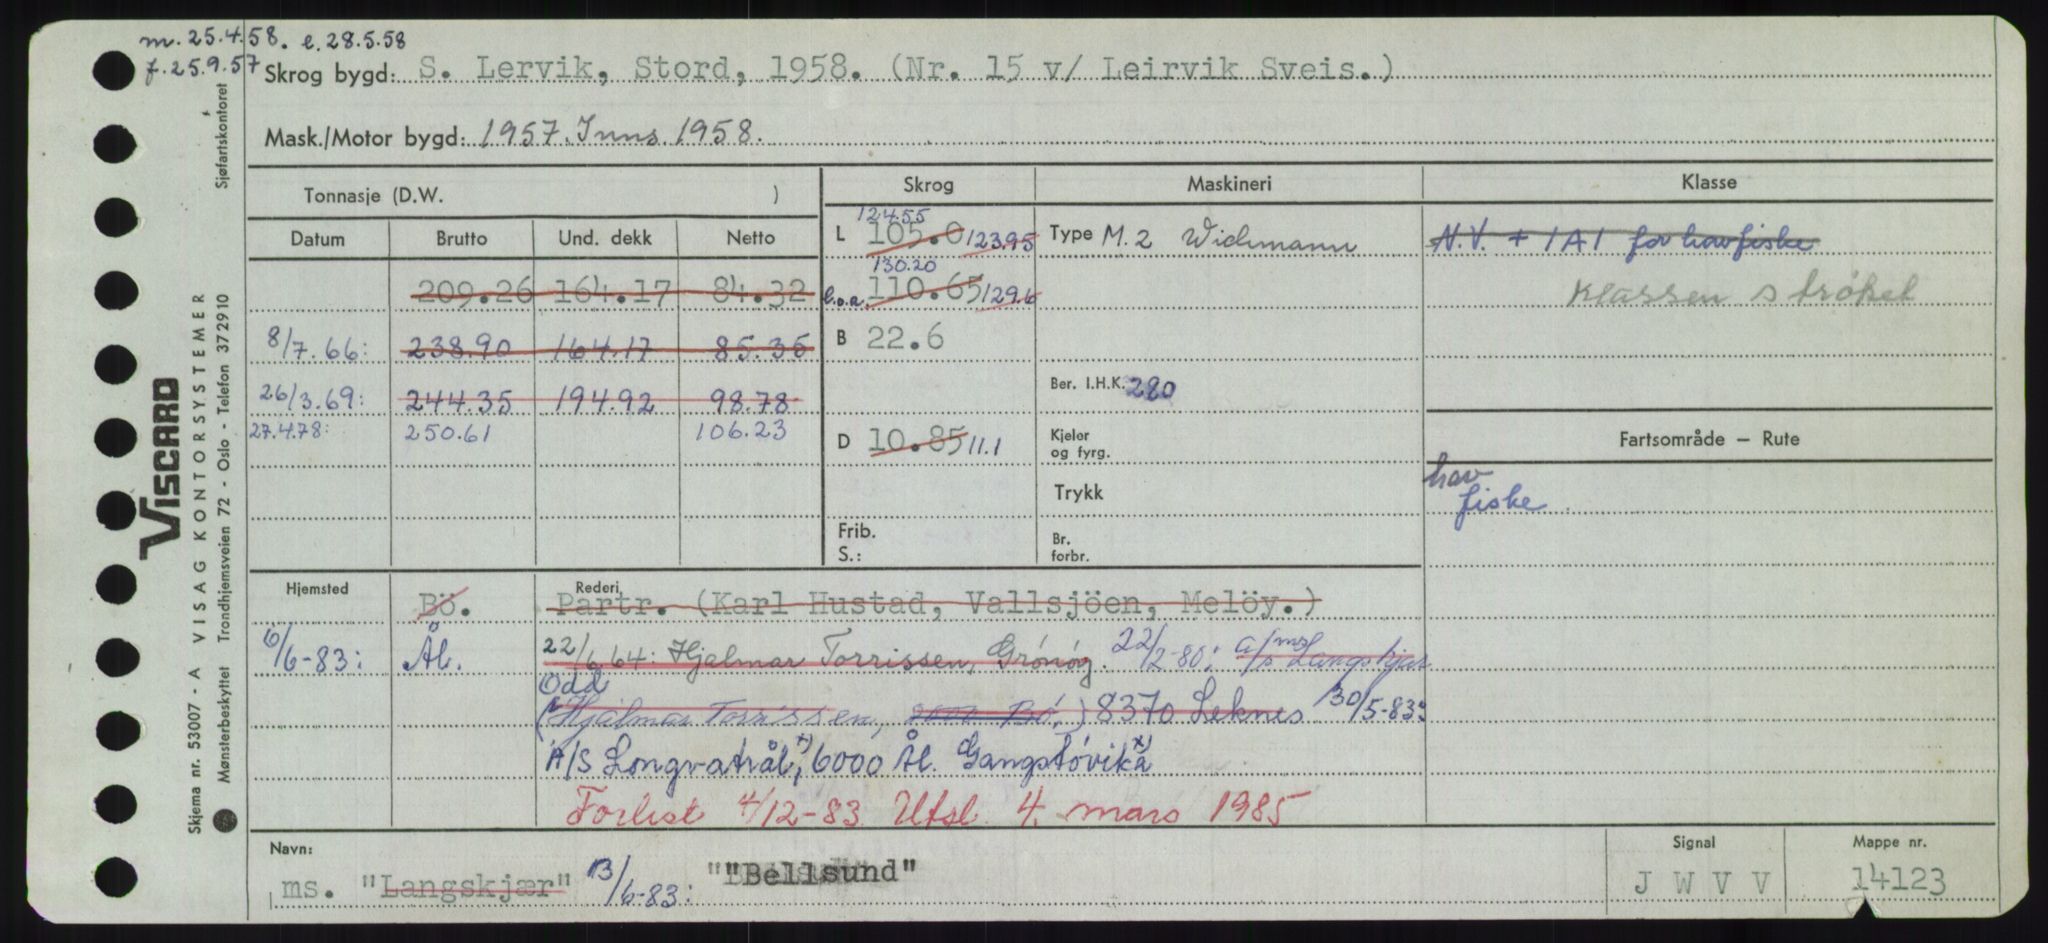 m. 25.4.58. e. 28.5.58
f. 25.9.57
Skrog bygd: S. Lervik, Stord, 1958. (Nr. 15 v/ Leirvik Sveis.)
Mask./Motor bygd: 1957. Inns. 1958.
Tonnasje (D.W. )
Skrog Maskineri Klasse
Datum Brutto Und. dekk Netto
124.55
L 105.0 123.95
Type M. 2 Wichmann
N.V. + 1A1 for havfiske
Klassen strøket
209.26 164.17 84.32
130.20
l.o.a. 110.65 129.6
8/7.66: 238.90 164.17 85.35
B 22.6
26/3.69: 244.35 194.92 98.78
Ber. I.H.K. 280
27.4.78: 250.61 106.23
D 10.85 11.1
Kjeler
og fyrg.
Fartsområde — Rute
Trykk
hav
fiske
Frib.
S.:
Br.
forbr.
Hjemsted Bö.
Rederi
Partr. (Karl Hustad, Vallsjöen, Melöy.)
6/6-83: Ål.
22/6 64: Hjalmar Torrissen, Grönöy. 22/2-80: a/s ms/ Langskjær
Odd
(Hjalmar Torrissen, Bö,) 8370 Leknes 30/5-83:
A/S Longvatrål, x) 6000 Ål. Gangstövika x)
Forlist 4/12-83 Utsl 4. mars 1985
Navn:
ms. "Langskjær" 13/6-83: "Bellsund"
Signal
J W V V
Mappe nr.
14123
Skjema nr. 53007 - A VISAG KONTORSYSTEMER
VISCARD
Mønsterbeskyttet Trondhjemsveien 72 - Oslo - Telefon 372910
Sjøfartskontoret